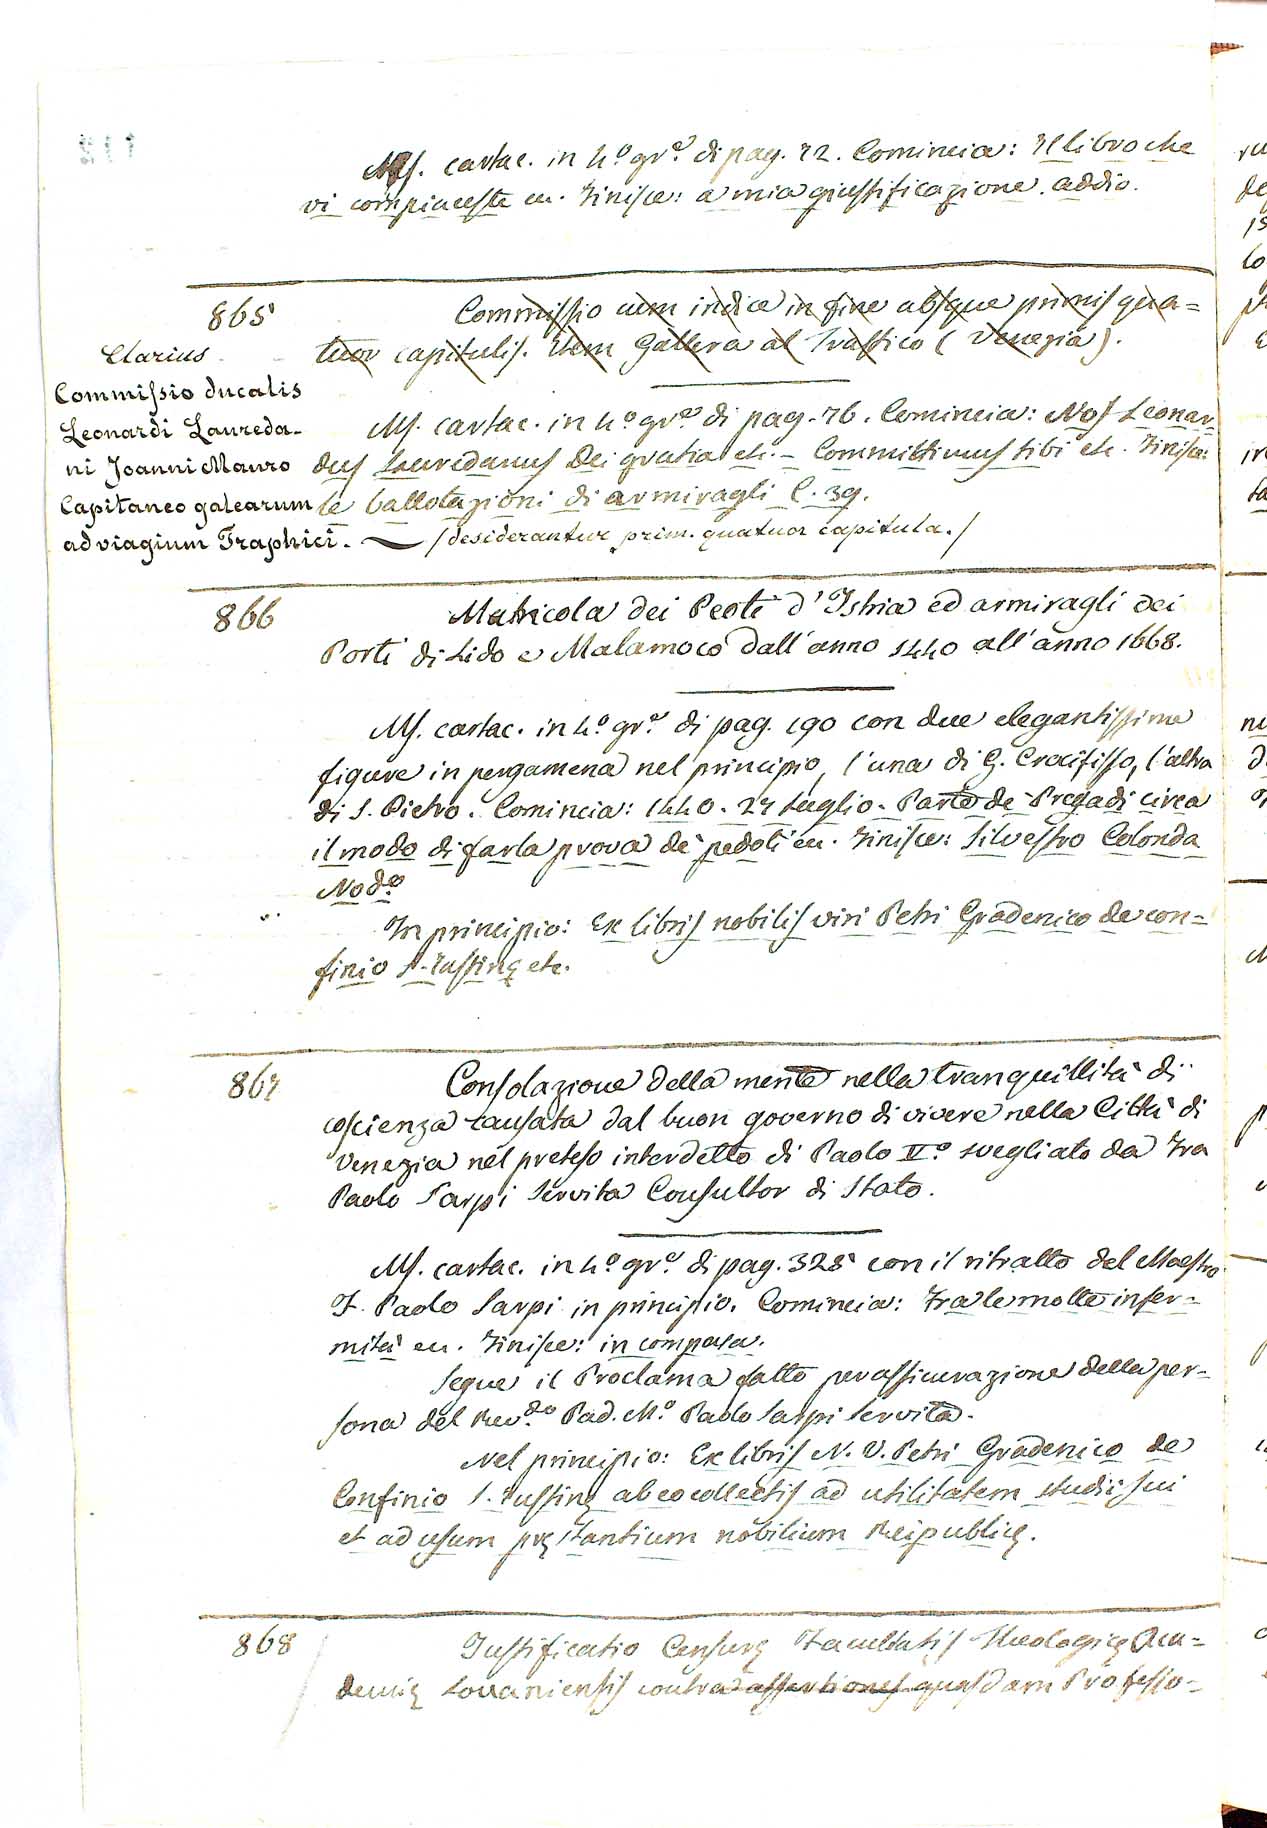 Ms. cartac. in 4.º gr.º di pag. 22. Comincia: Il libro che
vi compiaceste ec. Finisce: a mia giustificazione. addio.
865
Commissio cum indice in fine absque primis qua=
tuor capitulis. Item Gallera al Traffico (Venezia).
Clarius
Commissio ducalis
Leonardi Laureda-
ni Joanni Mauro
Capitaneo galearum
ad viagium Traphici.
Ms. cartac. in 4.º gr.º di pag. 76. Comincia: Nos Leonar-
dus Lauredanus Dei gratia etc. - Committimus tibi etc. Finisce:
le ballotazioni di armiragli C. 39.
/desiderantur prim. quatuor capitula./
866
Matricola dei Peoti d'Istria ed armiragli dei
Porti di Lido e Malamoco dall'anno 1440 all'anno 1668.
Ms. cartac. in 4.º gr.º di pag. 190 con due elegantissime
figure in pergamena nel principio, l'una di G. Crocifisso, l'altra
di S. Pietro. Comincia: 1440. 27 Luglio. Parte de Pregadi circa
il modo di far la prova de' pedoti ec. Finisce: Silvestro Colonda
Nod.º
In principio: Ex libris nobilis viri Petri Gradenico de con=
finio S. Justinę etc.
867
Consolazione della mente nella tranquillità di
coscienza causata dal buon governo di vivere nella Città di
Venezia nel preteso interdetto di Paolo V.º svegliato da Fra
Paolo Sarpi Servita Consultor di Stato.
Ms. cartac. in 4.º gr.º di pag. 328 con il ritratto del Maestro
F. Paolo Sarpi in principio. Comincia: Fra le molte infer=
mità ec. Finisce: in compera.
Segue il Proclama fatto per assicurazione della per=
sona del Rev.do Pad. M.º Paolo Sarpi Servita.
Nel principio: Ex libris N. V. Petri Gradenico de
Confinio S. Justinę ab eo collectis ad utilitatem studii sui
et ad usum pręstantium nobilium Reipublicę.
868
Justificatio Censurę Facultatis Theologię Aca=
demię Lovaniensis contra assertiones quasdam Professo=